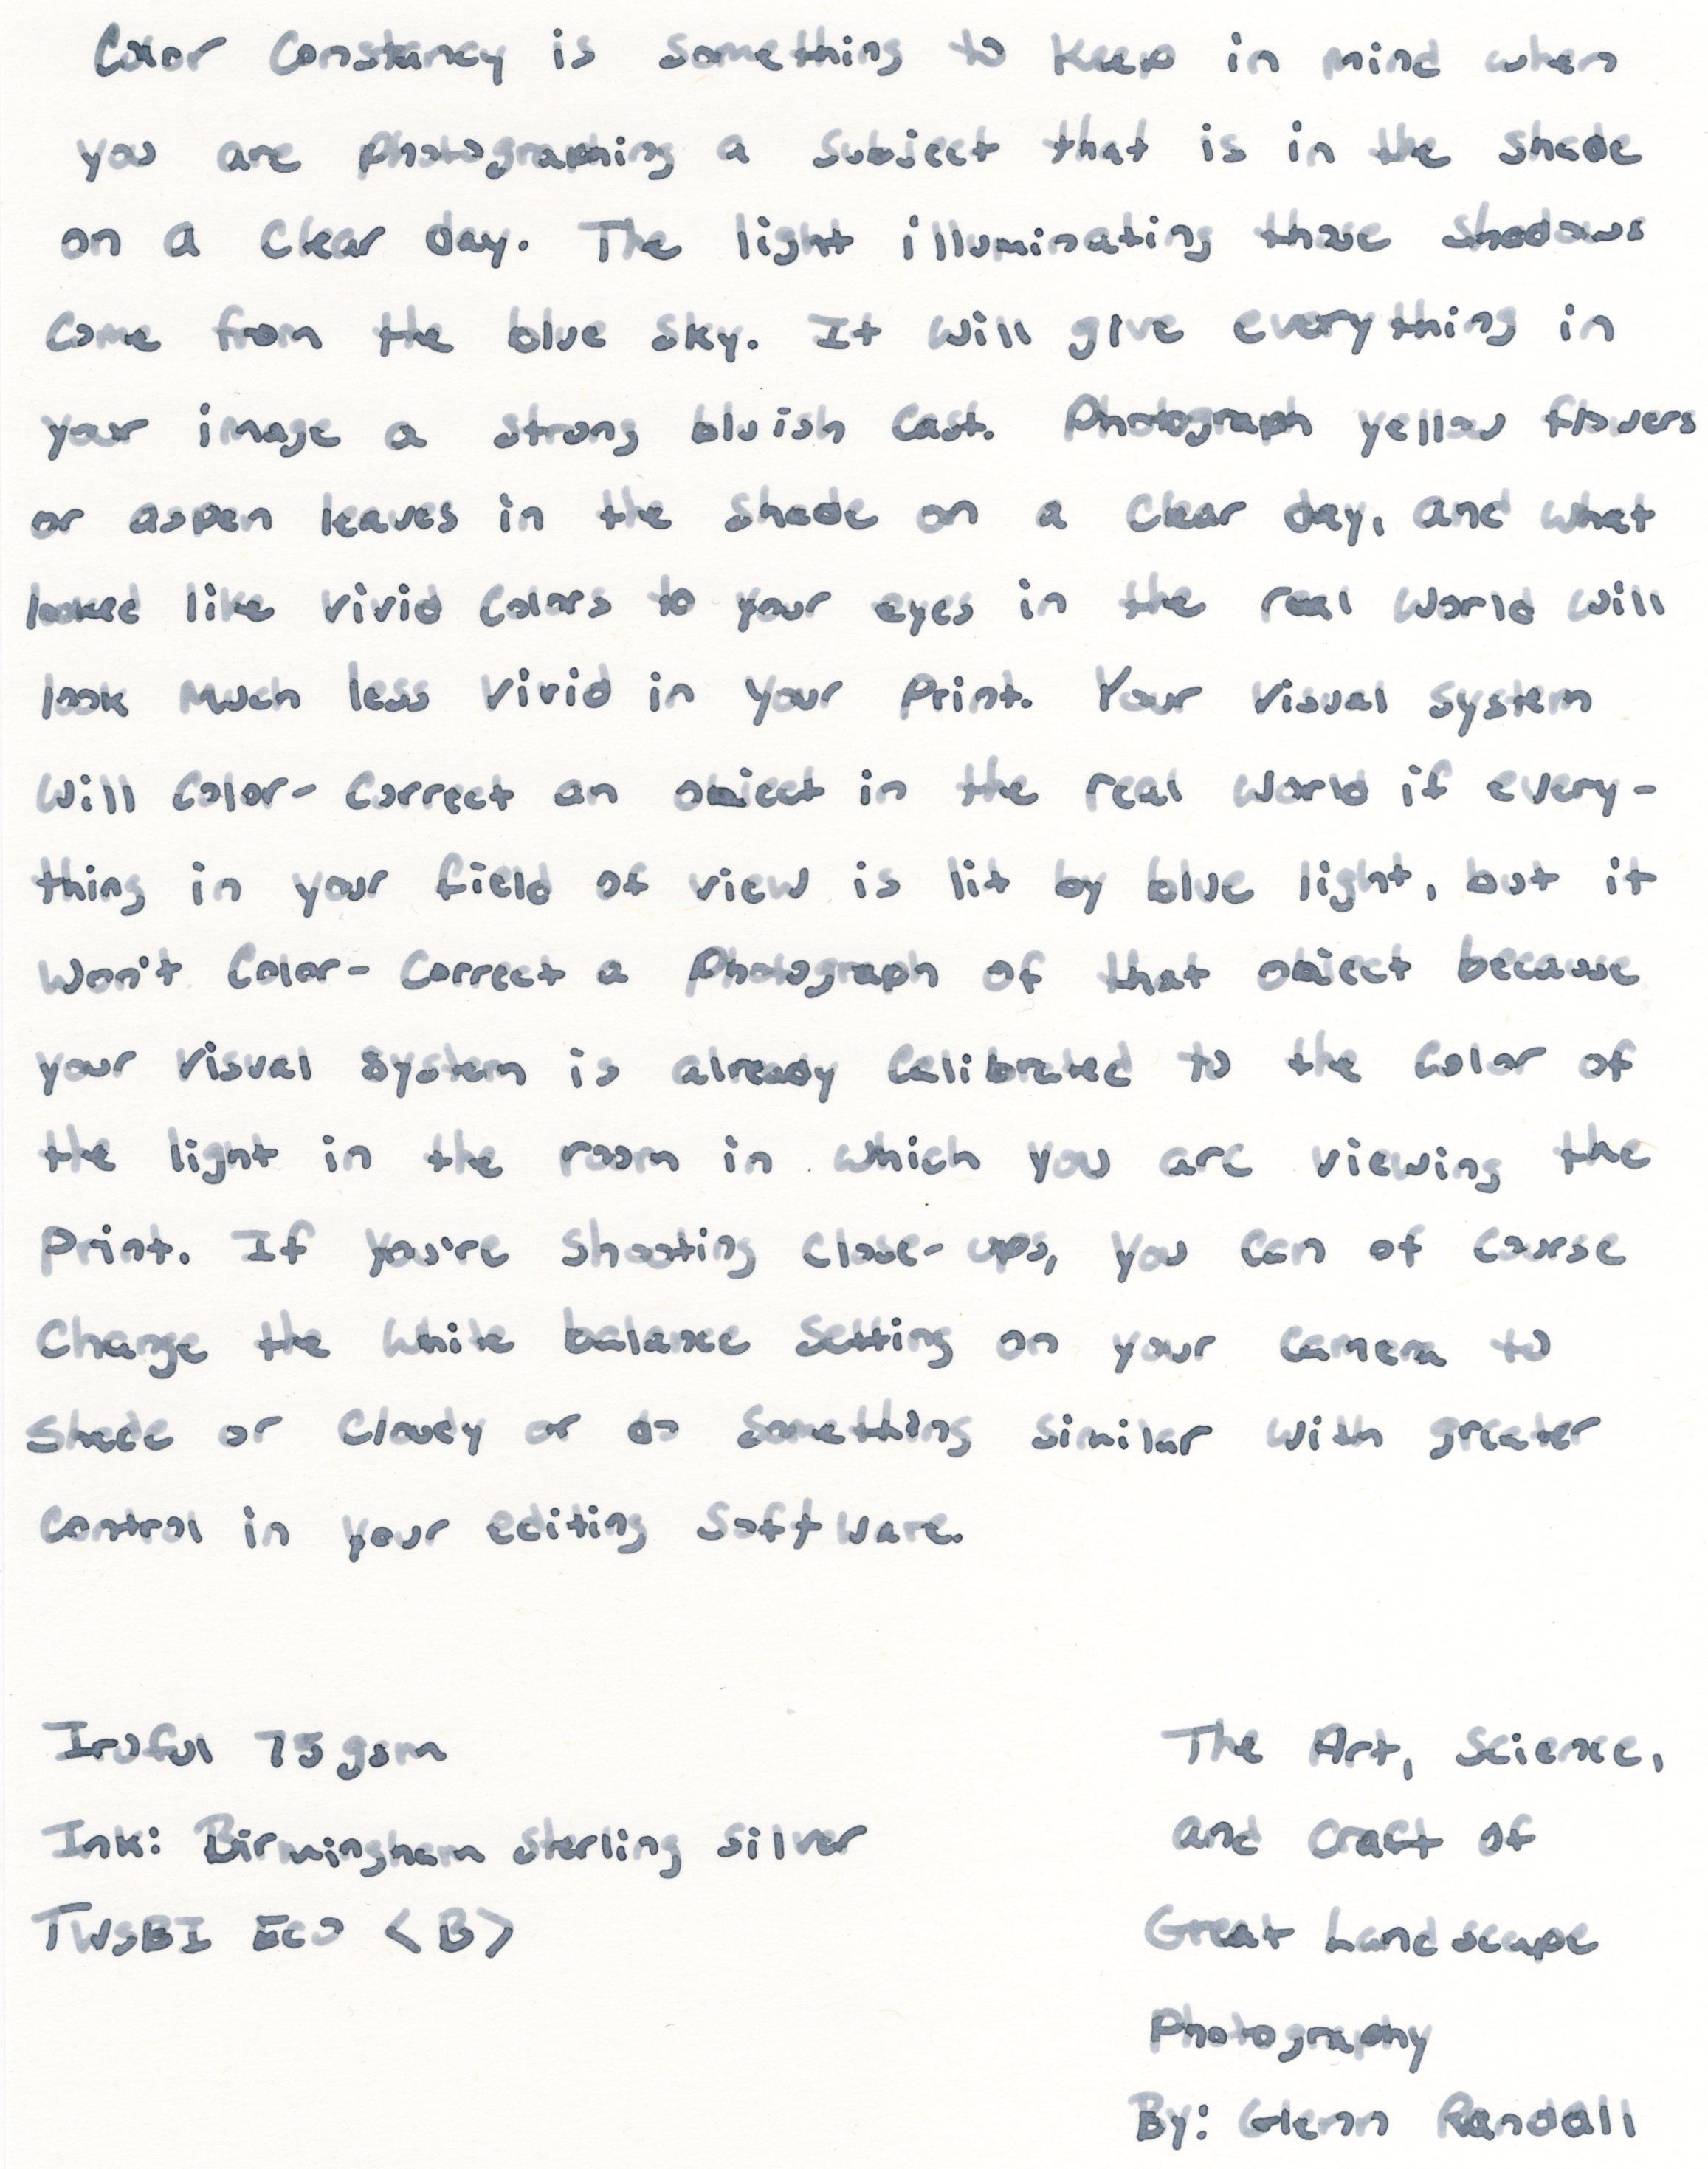 Color Constancy is something to keep in mind when
you are photographing a subject that is in the shade
on a clear day. The light illuminating those shadows
come from the blue sky. It will give everything in
your image a strong bluish cast. Photograph yellow flowers
or aspen leaves in the shade on a clear day, and what
looked like vivid colors to your eyes in the real world will
look much less vivid in your print. Your visual system
will color-correct an object in the real world if every-
thing in your field of view is lit by blue light, but it
won't color-correct a photograph of that object because
your visual system is already calibrated to the color of
the light in the room in which you are viewing the
print. If you're shooting close-ups, you can of course
change the white balance setting on your camera to
shade or cloudy or do something similar with greater
control in your editing software.
Iroful 75gsm
Ink: Birmingham Sterling Silver
TWSBI Eco <B>
The Art, Science,
and Craft of
Great Landscape
Photography
By: Glenn Randall